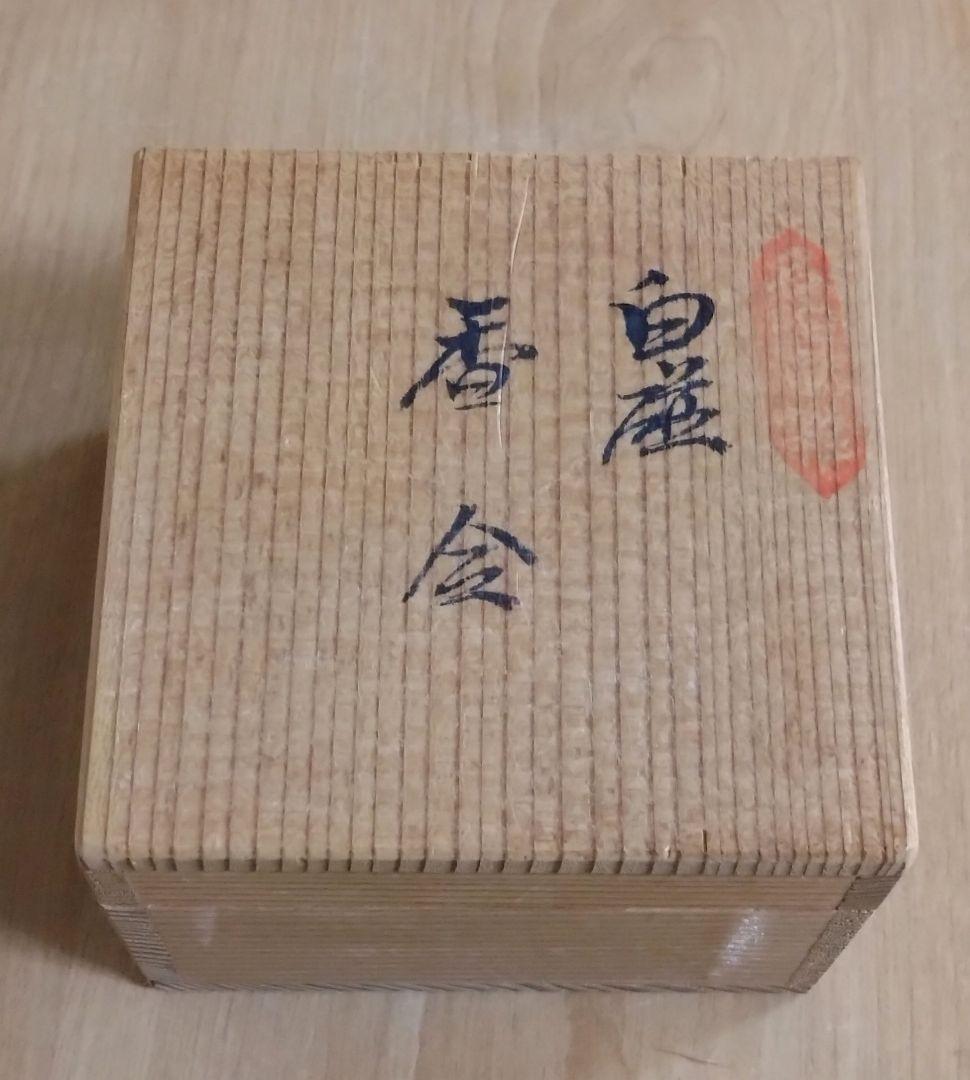 白磁
香合